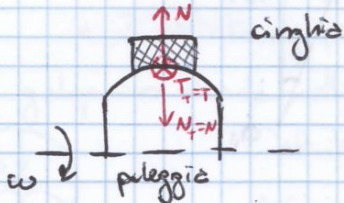 N
cinghia
T_T=T
N_T=N
ω
puleggia